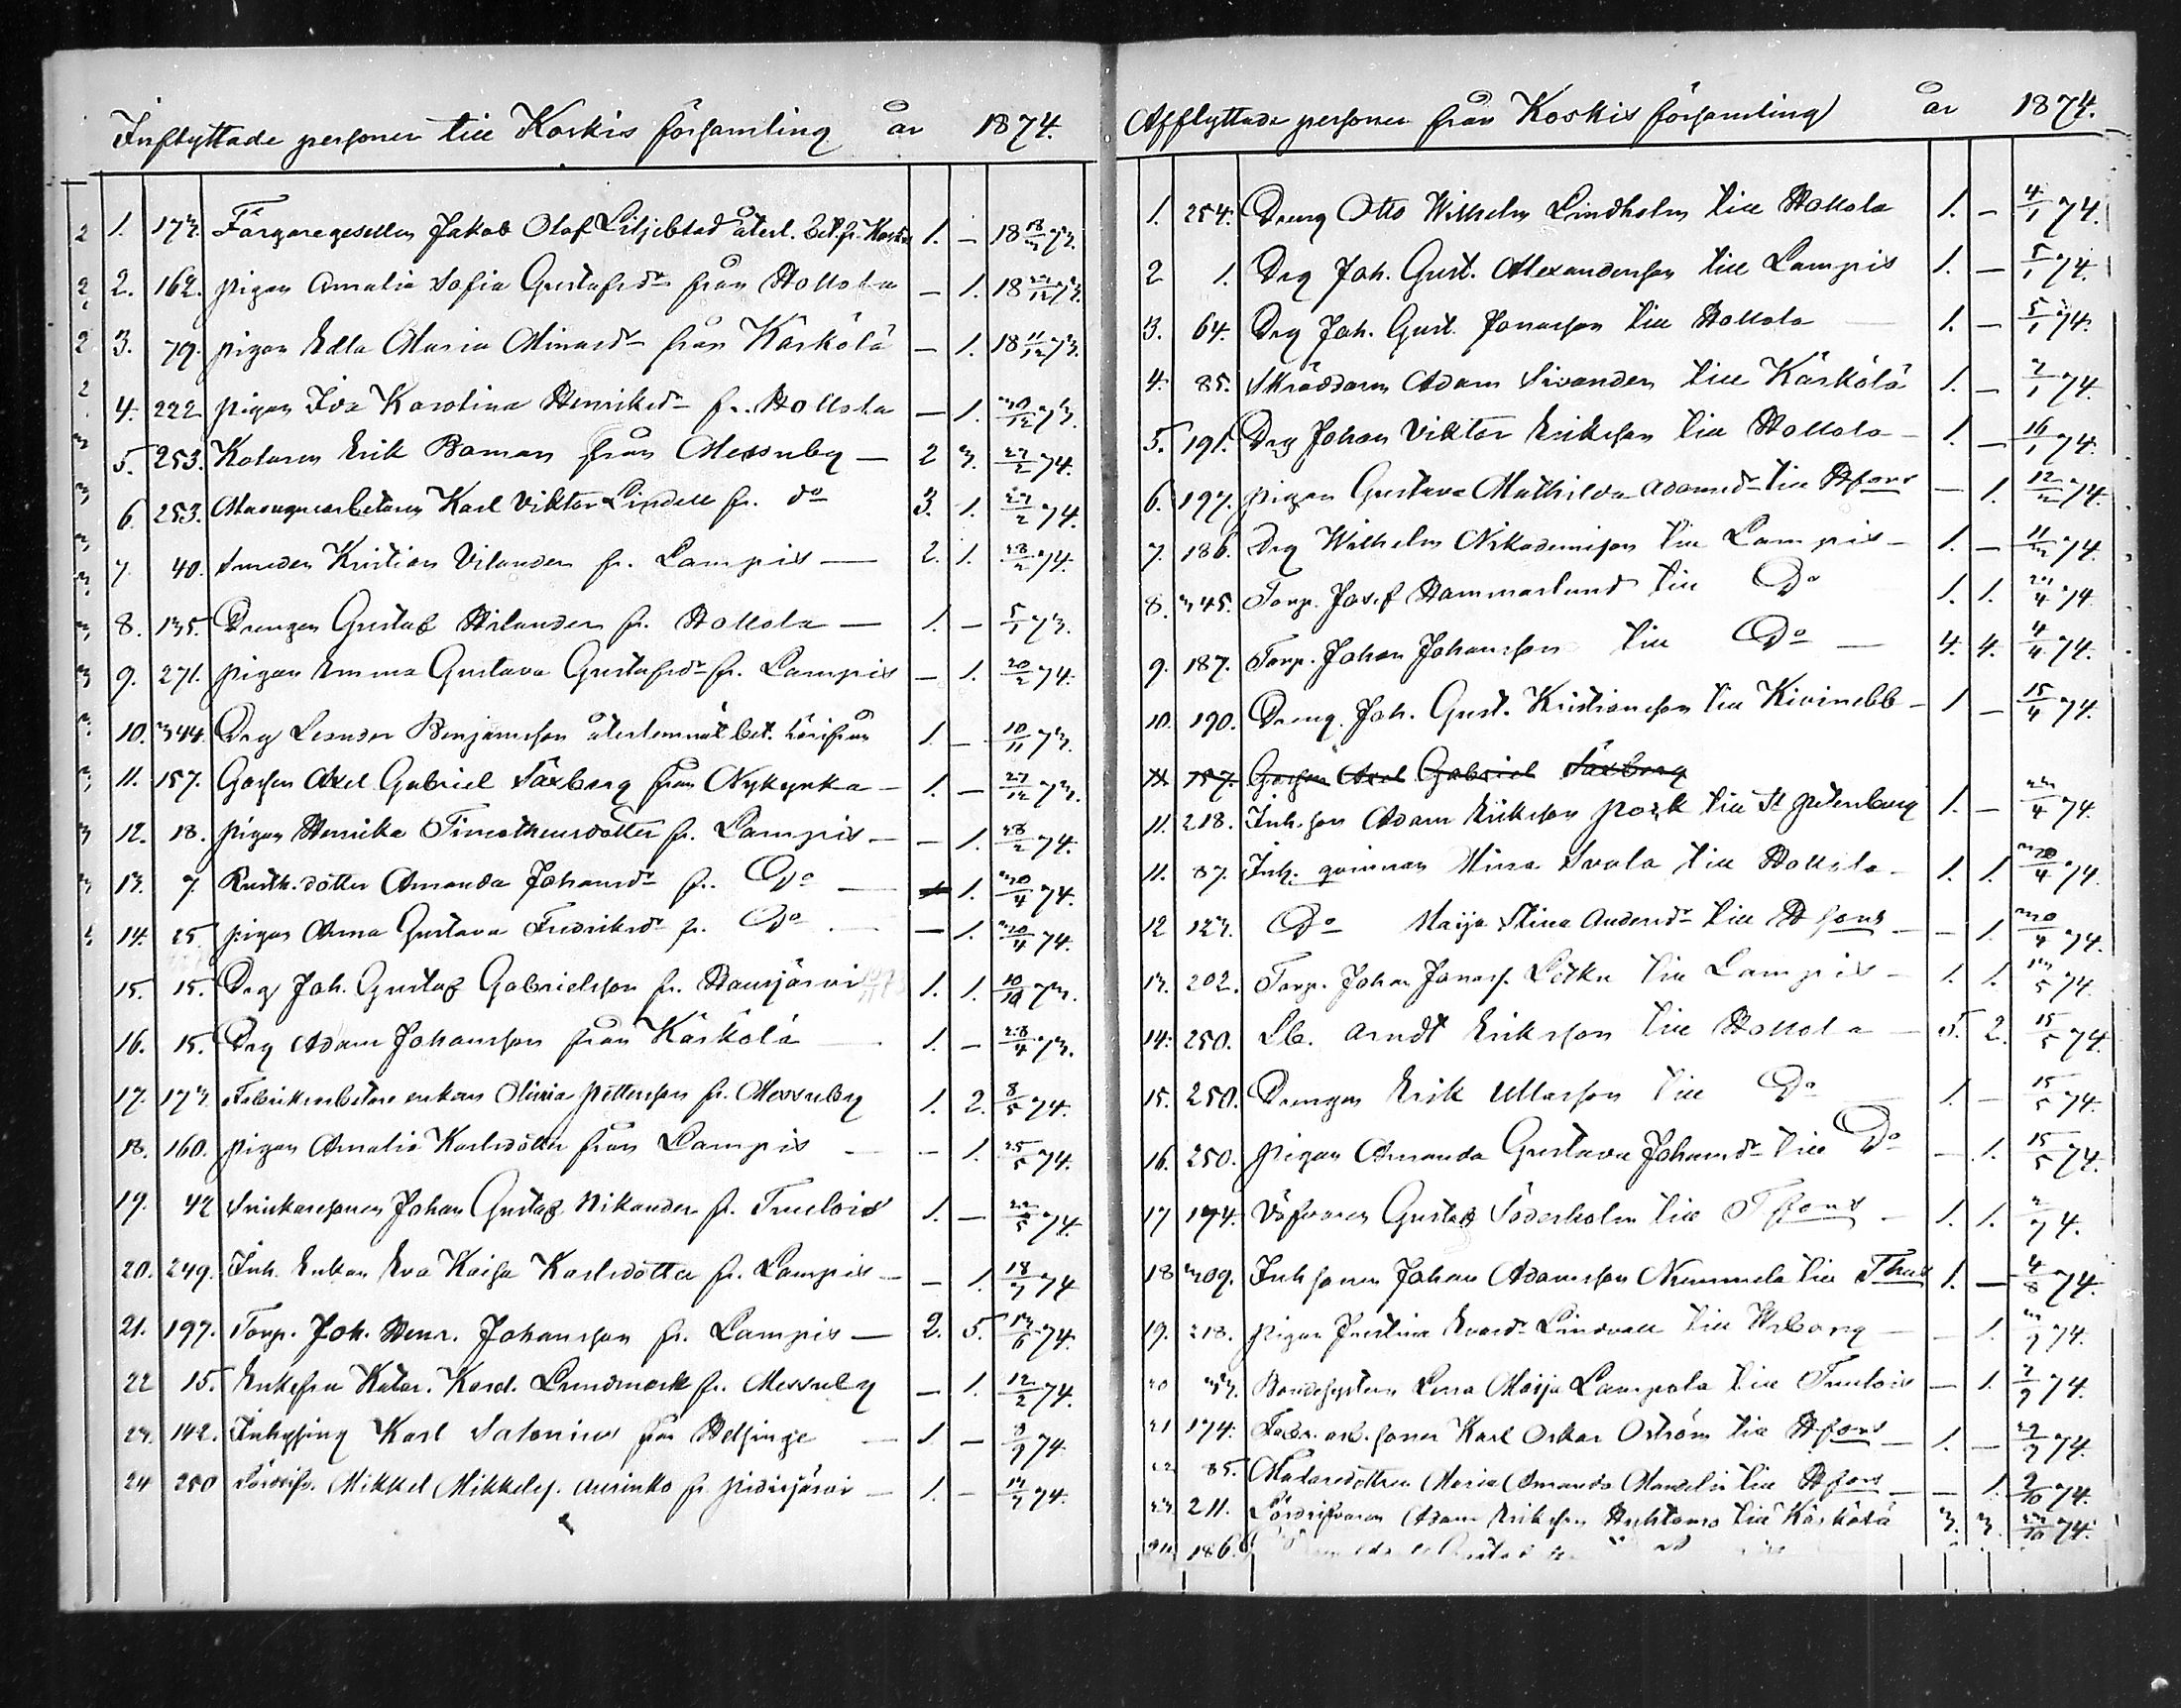 Inflyttade personer till Koskis församling år 1874.
2 1. 173. Färgaregesellen Jakob Olof Liljeblad återl. bet. fr. 1. — 18 18/3 73.
2 2. 162. pigan Amalia Sofia Gustafsdr från Hollola — 1. 18 /12 73.
2 3. 79. pigan Edla Maria Minasdr från Kärkölä — 1. 18 11/12 73.
2 4. 222 pigan Iva Karolina Henriksdr fr. Hollola — 1. 30/12 73.
3 5. 253. Kolaren Erik Boman från Messuby — 2 3. 27/2 74.
3 6. 253. Masugnsarbetaren Karl Viktor Lindell fr. do 3. 1. 27/2 74.
3 7. 40. Smeden Kristian Vilander fr. Lampis — 2. 1. 28/2 74.
3 8. 135. Drengen Gustaf Hilander fr. Hollola — 1. — 5/1 73.
3 9. 271. pigan Emma Gustava Gustafsdr fr. Lampis — 1. 20/2 74.
3 10. 344. Drg Leander Benjamsson återlemnat bet. härifrån 1. — 10/11 73.
3 11. 157. Gossen Axel Gabriel Saxberg från Nykyrka — 1. — 27/12 73.
3 12. 18. pigan Henrika Timotheusdotter fr. Lampis — — 1. 28/2 74.
3 13. 7 Rusth. dotter Amanda Johansdr fr. Do — 1. 30/4 74.
14. 25. pigan Anna Gustava Fredriksdr fr. Do — — 1. 30/4 74.
15. 15. Drg Joh. Gustaf Gabrielsson fr. Hausjärvi 1. 1. 10/10 73.
16. 15. Drg Adam Johansson från Kärkölä — 1. — 28/4 73.
17. 173. Fabriksarbetare enkan Olivia Pettersson fr. Messuby 1. 2. 8/5 74.
18. 160. pigan Amalia Karlsdotter från Lampis — — 1. 25/5 74.
19. 42 Snickaresonen Johan Gustaf Nikander fr. Tuulois 1. — 22/5 74.
20. 249. Inh. Enkan Eva Kaisa Karlsdotter fr. Lampis — — 1. 18/7 74
21. 197. Torp. Joh. Henr. Johansson fr. Lampis — 2. 5. 13/6 74.
22 15. Enkefru Katar. Karol. Lundmark fr. Messuby — 1. 12/2 74.
23. 142. Inhysing Karl Salonius från Helsinge — 1 — 8/9 74.
24 250 Mikkel Mikkelss. Aurinko fr. Pidisjärvi — 1. — 74.
Afflyttade personer från Koskis församling år 1874.
1. 254. Dreng Otto Wilhelm Lindholm till Hollola 1. — 4/1 74.
2 1. Drg Joh. Gust. Alexandersson till Lampis 1. — 5/1 74.
3. 64. Drg Joh. Gust. Jonasson till Hollola — 1. — 5/1 74.
4. 85. Skräddaren Adam Sivander till Kärkölä 1. — 7/1 74.
5. 191. Drg Johan Viktor Eriksson till Hollola — 1. — 16/1 74.
6. 197. pigan Gustava Mathilda Adamsdr till Hfors — 1. 12/2 74.
7. 186. Drg Wilhelm Nikodemisson till Lampis — 1. — 11/3 74.
8. 345. Torp. Josef Hammarlund till Do 1. 1. /4 74
9. 187. Torp. Johan Johansson till Do — 4. 4. 4/4 74.
10. 190. Dreng. Joh. Gust. Kristiansson till Kivinebb — 1 — 15/4 74.
11. 157. Gossen Axel Gabriel Saxberg
11. 218. Inh. son Adam Eriksson Pork till St Petersburg 1. — /4 74.
11. 87. Inh. qvinnan Mina Svala till Hollola — 1. 1. 30/4 74.
12 123. Do Maija Stina Andersdr till Hfors — — 1. 30/4 74.
13. 202. Torp. Johan Jonass. Lotku till Lampis — 1. 1. 13/5 74.
14. 250. Sb. Arndt Eriksson till Hollola — 5. 2. 15/5 74.
15. 250. Drengen Erik Ullasson till Do — 1. — 15/5 74.
16. 250. pigan Amanda Gustava Johansdr till Do — 1. 15/5 74.
17 174. Väfvaren Gustaf Söderholm till Tfors — 1. 1. 2/7 4.
18 309. Inhsonen Johan Adamsson Nummela till Thus 1. — 4/8 74.
19. 218. pigan Justina Evasdr Lindvall till Wiborg — — 1. /9 74.
20 33. Bondesystern Lena Maija Lampola till Tuulois — 1. 7/9 74.
21 174. Fabr. arb. sonen Karl Oskar Oström till Hfors — 1. — 22/9 74.
22 85. Maria Amanda Mandelin till Hfors — — 1. 2/10 74.
23. 211. Adam Eriksson till Kärkölä 3. 3. 23/10 74.
24. 186.